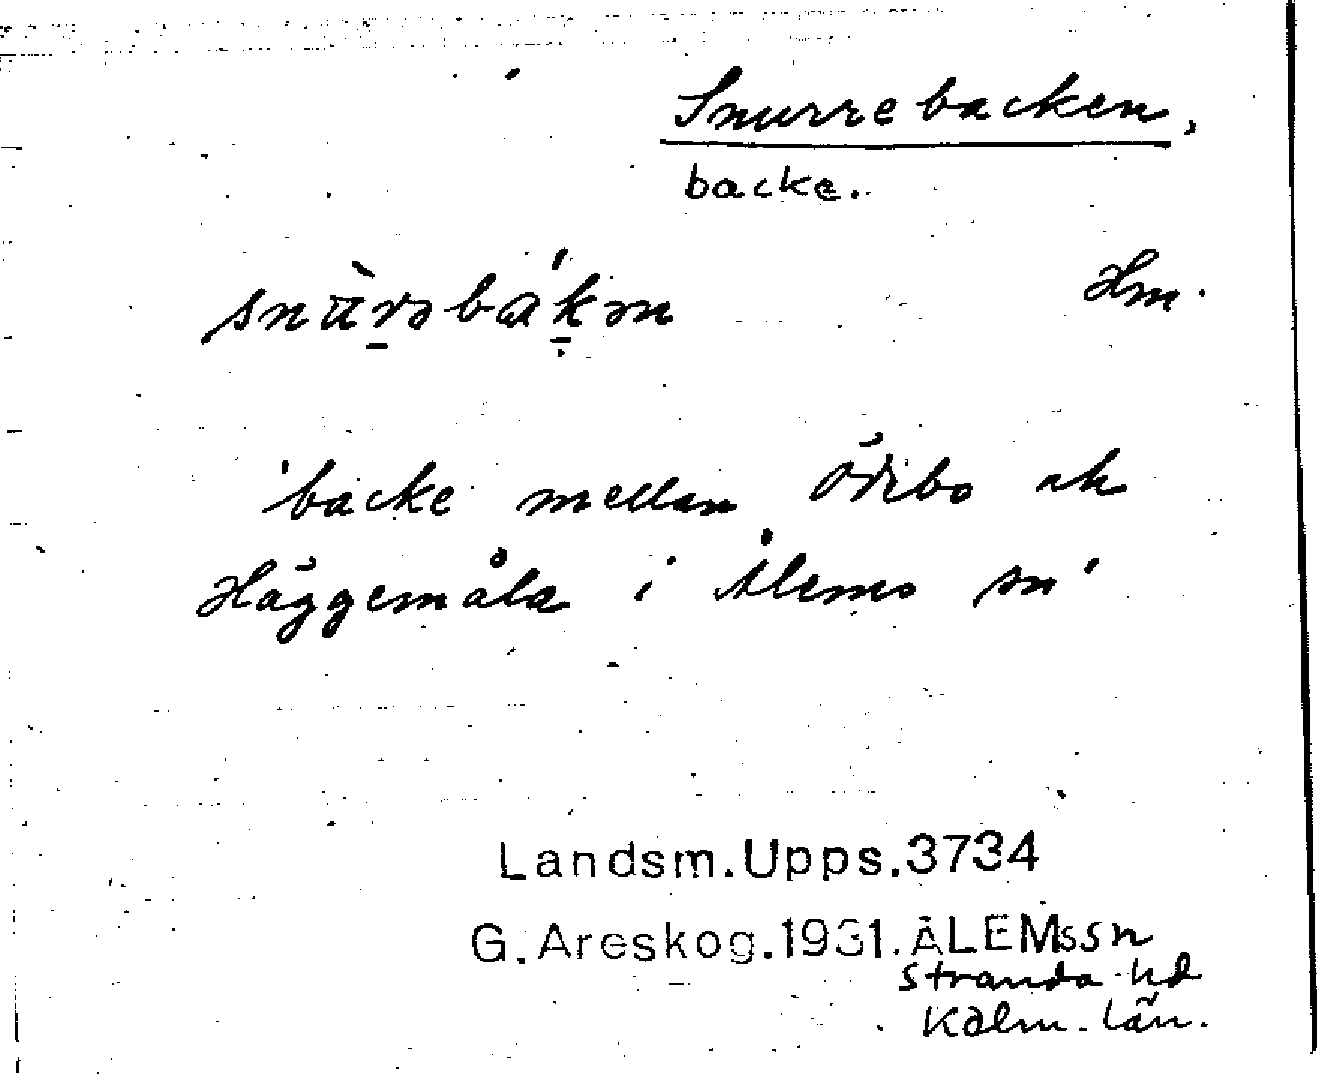 Snurrebacken,
backe.
snùrəbákən Hm.
'backe mellan Ödibo ock
Häggemåla i Ålems sn'
Landsm.Upps.3734
G.Areskog.1931.ÅLEMssn
Stranda hd
Kalm. län.